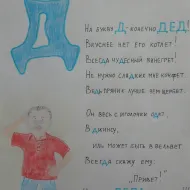 Д
На букву Д- конечно ДЕД!
Вкуснее нет его котлет!
Всегда чудесный винегрет!
Не нужно сладких мне конфет
Ведь время лучше чем обед!
Он весь с иголочки одет.
В джинсу,
иль может быть в вельвет
Всегда скажу ему:
„Привет!"